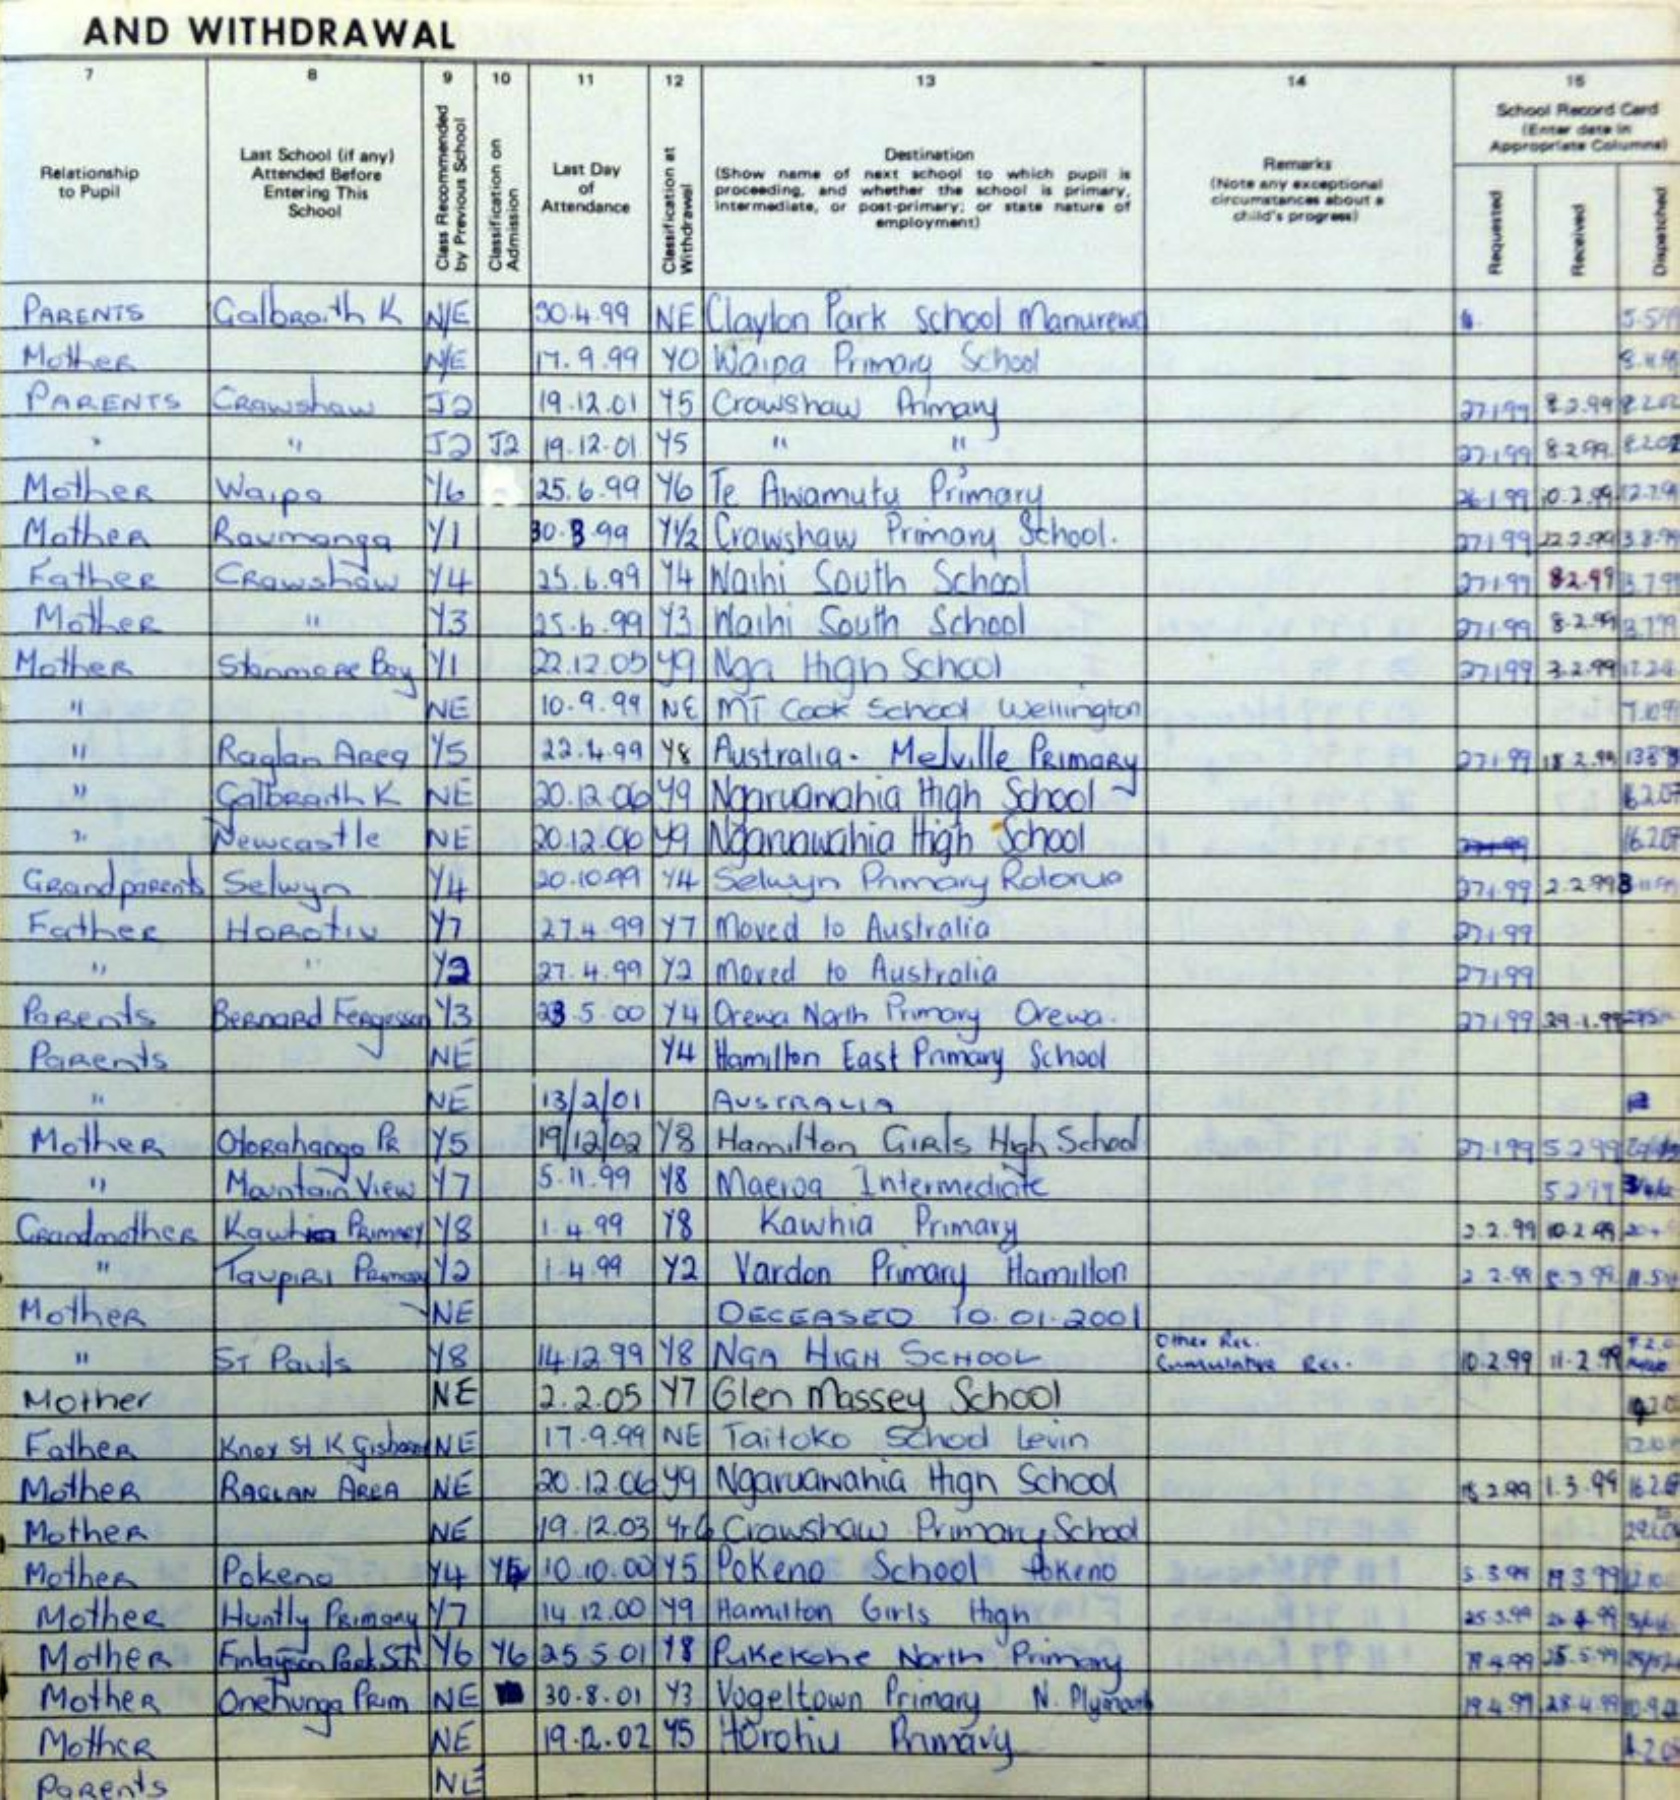 AND WITHDRAWAL
7 8 9 10 11 12 13 14 15
Relationship to Pupil
Last School (if any) Attended Before Entering This School
Class Recommended by Previous School
Classification on Admission
Last Day of Attendance
Classification at Withdrawal
Destination
(Show name of next school to which pupil is proceeding, and whether the school is primary, intermediate, or post-primary; or state nature of employment)
Remarks
(Note any exceptional circumstances about a child's progress)
School Record Card
(Enter date in Appropriate Columns)
Requested Received Dispatched
PARENTS Galbraith K N/E 30.4.99 NE Clayton Park School Manurewa
Mother N/E 17.9.99 Y0 Waipa Primary School
PARENTS Crawshaw J2 19.12.01 Y5 Crawshaw Primary 27.1.99 8.2.99
" " J2 J2 19.12.01 Y5 " " 27.1.99 8.2.99
Mother Waipa Y6 25.6.99 Y6 Te Awamutu Primary 26.1.99 10.2.99
Mother Raumanga Y1 30.8.99 Y1/2 Crawshaw Primary School. 27.1.99 22.2.99
Father Crawshaw Y4 25.6.99 Y4 Waihi South School 27.1.99 8.2.99
Mother " Y3 25.6.99 Y3 Waihi South School 27.1.99 8.2.99
Mother Stanmore Bay Y1 22.12.05 Y9 Nga High School 27.1.99 3.2.99
" NE 10.9.99 NE MT Cook School Wellington
" Raglan Area Y5 22.4.99 Y8 Australia. Melville Primary 27.1.99 18.2.99
" Galbraith K NE 20.12.06 Y9 Ngaruawahia High School
" Newcastle NE 20.12.06 Y9 Ngaruawahia High School 27.1.99
Grandparents Selwyn Y4 20.10.99 Y4 Selwyn Primary Rotorua 27.1.99 2.2.99
Father Horotiu Y7 27.4.99 Y7 Moved to Australia 27.1.99
" " Y2 27.4.99 Y2 Moved to Australia 27.1.99
Parents Bernard Fergesson Y3 23.5.00 Y4 Orewa North Primary Orewa. 27.1.99 29.1.99
Parents NE Y4 Hamilton East Primary School
" NE 13/2/01 AUSTRALIA
Mother Otorahanga Pr Y5 19/12/02 Y8 Hamilton Girls High School 27.1.99 5.2.99
" Mountain View Y7 5.11.99 Y8 Maeroa Intermediate 5.2.99
Grandmother Kawhia Primary Y8 1.4.99 Y8 Kawhia Primary 2.2.99 10.2.99
" Taupiri Primary Y2 1.4.99 Y2 Vardon Primary Hamilton 2.2.99 8.3.99
Mother NE DECEASED 10.01.2001
" ST Pauls Y8 14.12.99 Y8 NGA HIGH SCHOOL Other Rec. Cumulative Rec. 10.2.99 11.2.99
Mother NE 2.2.05 Y7 Glen Massey School
Father Knox St K Gisborne NE 17.9.99 NE Taitoko School Levin
Mother RAGLAN AREA NE 20.12.06 Y9 Ngaruawahia High School 18.2.99 1.3.99
Mother NE 19.12.03 Yr6 Crawshaw Primary School
Mother Pokeno Y4 Y5 10.10.00 Y5 Pokeno School Pokeno 5.3.99 19.3.99
Mother Huntly Primary Y7 14.12.00 Y9 Hamilton Girls High 25.3.99
Mother Finlayson Park Sch Y6 Y6 25.5.01 Y8 Pukekohe North Primary 19.4.99 25.5.99
Mother Onehunga Prim NE 30.8.01 Y3 Vogeltown Primary N. Plymouth 19.4.99 28.4.99
Mother NE 19.12.02 Y5 Horotiu Primary
Parents NE